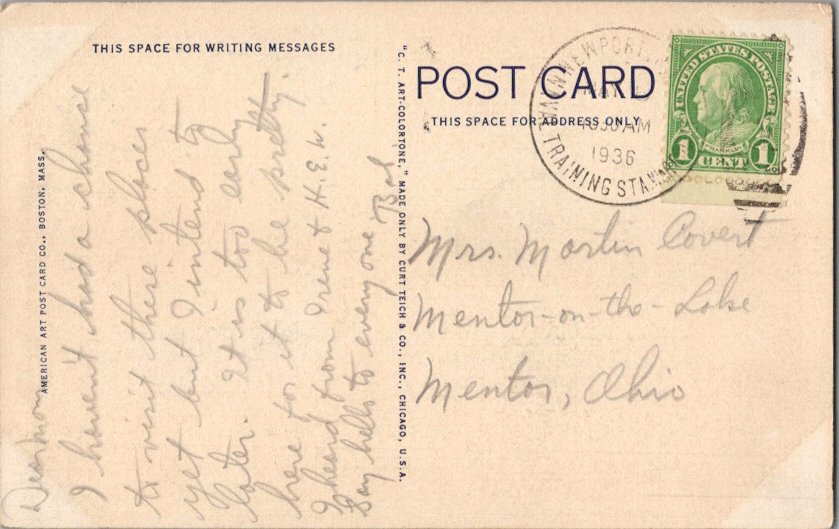 THIS SPACE FOR WRITING MESSAGES
Dear Mom
I haven't had a chance
to visit these places
yet but I intend to
later. It is too early
here for it to be pretty.
I heard from Irene & H.E.W.
Say hello to everyone
Bob
AMERICAN ART POST CARD CO., BOSTON, MASS.
"C. T. ART-COLORTONE," MADE ONLY BY CURT TEICH & CO., INC., CHICAGO, U.S.A.
POST CARD
THIS SPACE FOR ADDRESS ONLY
NEWPORT
AM
1936
TRAINING STA.
UNITED STATES POSTAGE
FRANKLIN
1 CENT 1
Mrs. Martin Covert
Mentor-on-the-Lake
Mentor, Ohio